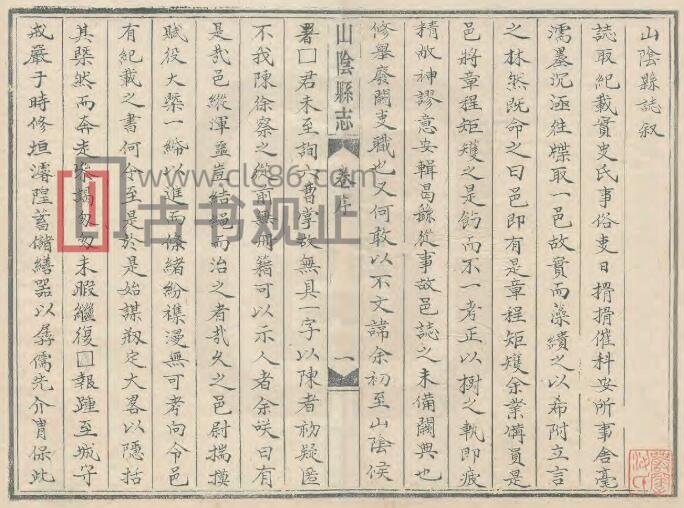 山陰縣誌叙
誌取紀載實史氏事俗吏日搰搰催科安所事舍毫
濡墨沉涵往牒取一邑故實而藻繢之以希附立言
之林然既命之曰邑即有是章程矩矱余業備員是
邑將章程矩矱之是飭而不一考正以樹之執即疲
精敝神謬意安輯曷餘從事故邑誌之未備闕典也
修舉廢闕吏職也又何敢以不文諱余初至山陰候
山陰縣志
卷序
一
署□君未至詢六曹掌故無具一字以陳者初疑匿
不我陳徐察之從前無冊籍可以示人者余咲曰有
是哉邑縱渾噩豈結繩而治之者哉久之邑尉揣摸
賦役大槩一緉以進而條緒紛襍漫無可考向令邑
有紀載之書何令至是於是始謀剏定大畧以隱括
其槩然而奔走參謁匆匆未暇繼復□報踵至城守
戒嚴于時修垣濬隍蓄儲繕器以孱儒先介胄保此
www.clc86.com
古书观止